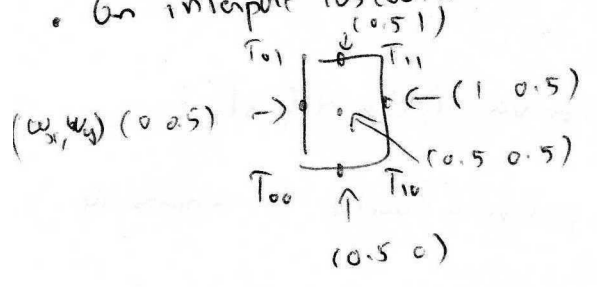 • Can interpole
(0.5 1)
T01 T11
(ωx, ωy) (0 0.5) -> <- (1 0.5)
(0.5 0.5)
T00 T10
(0.5 0)